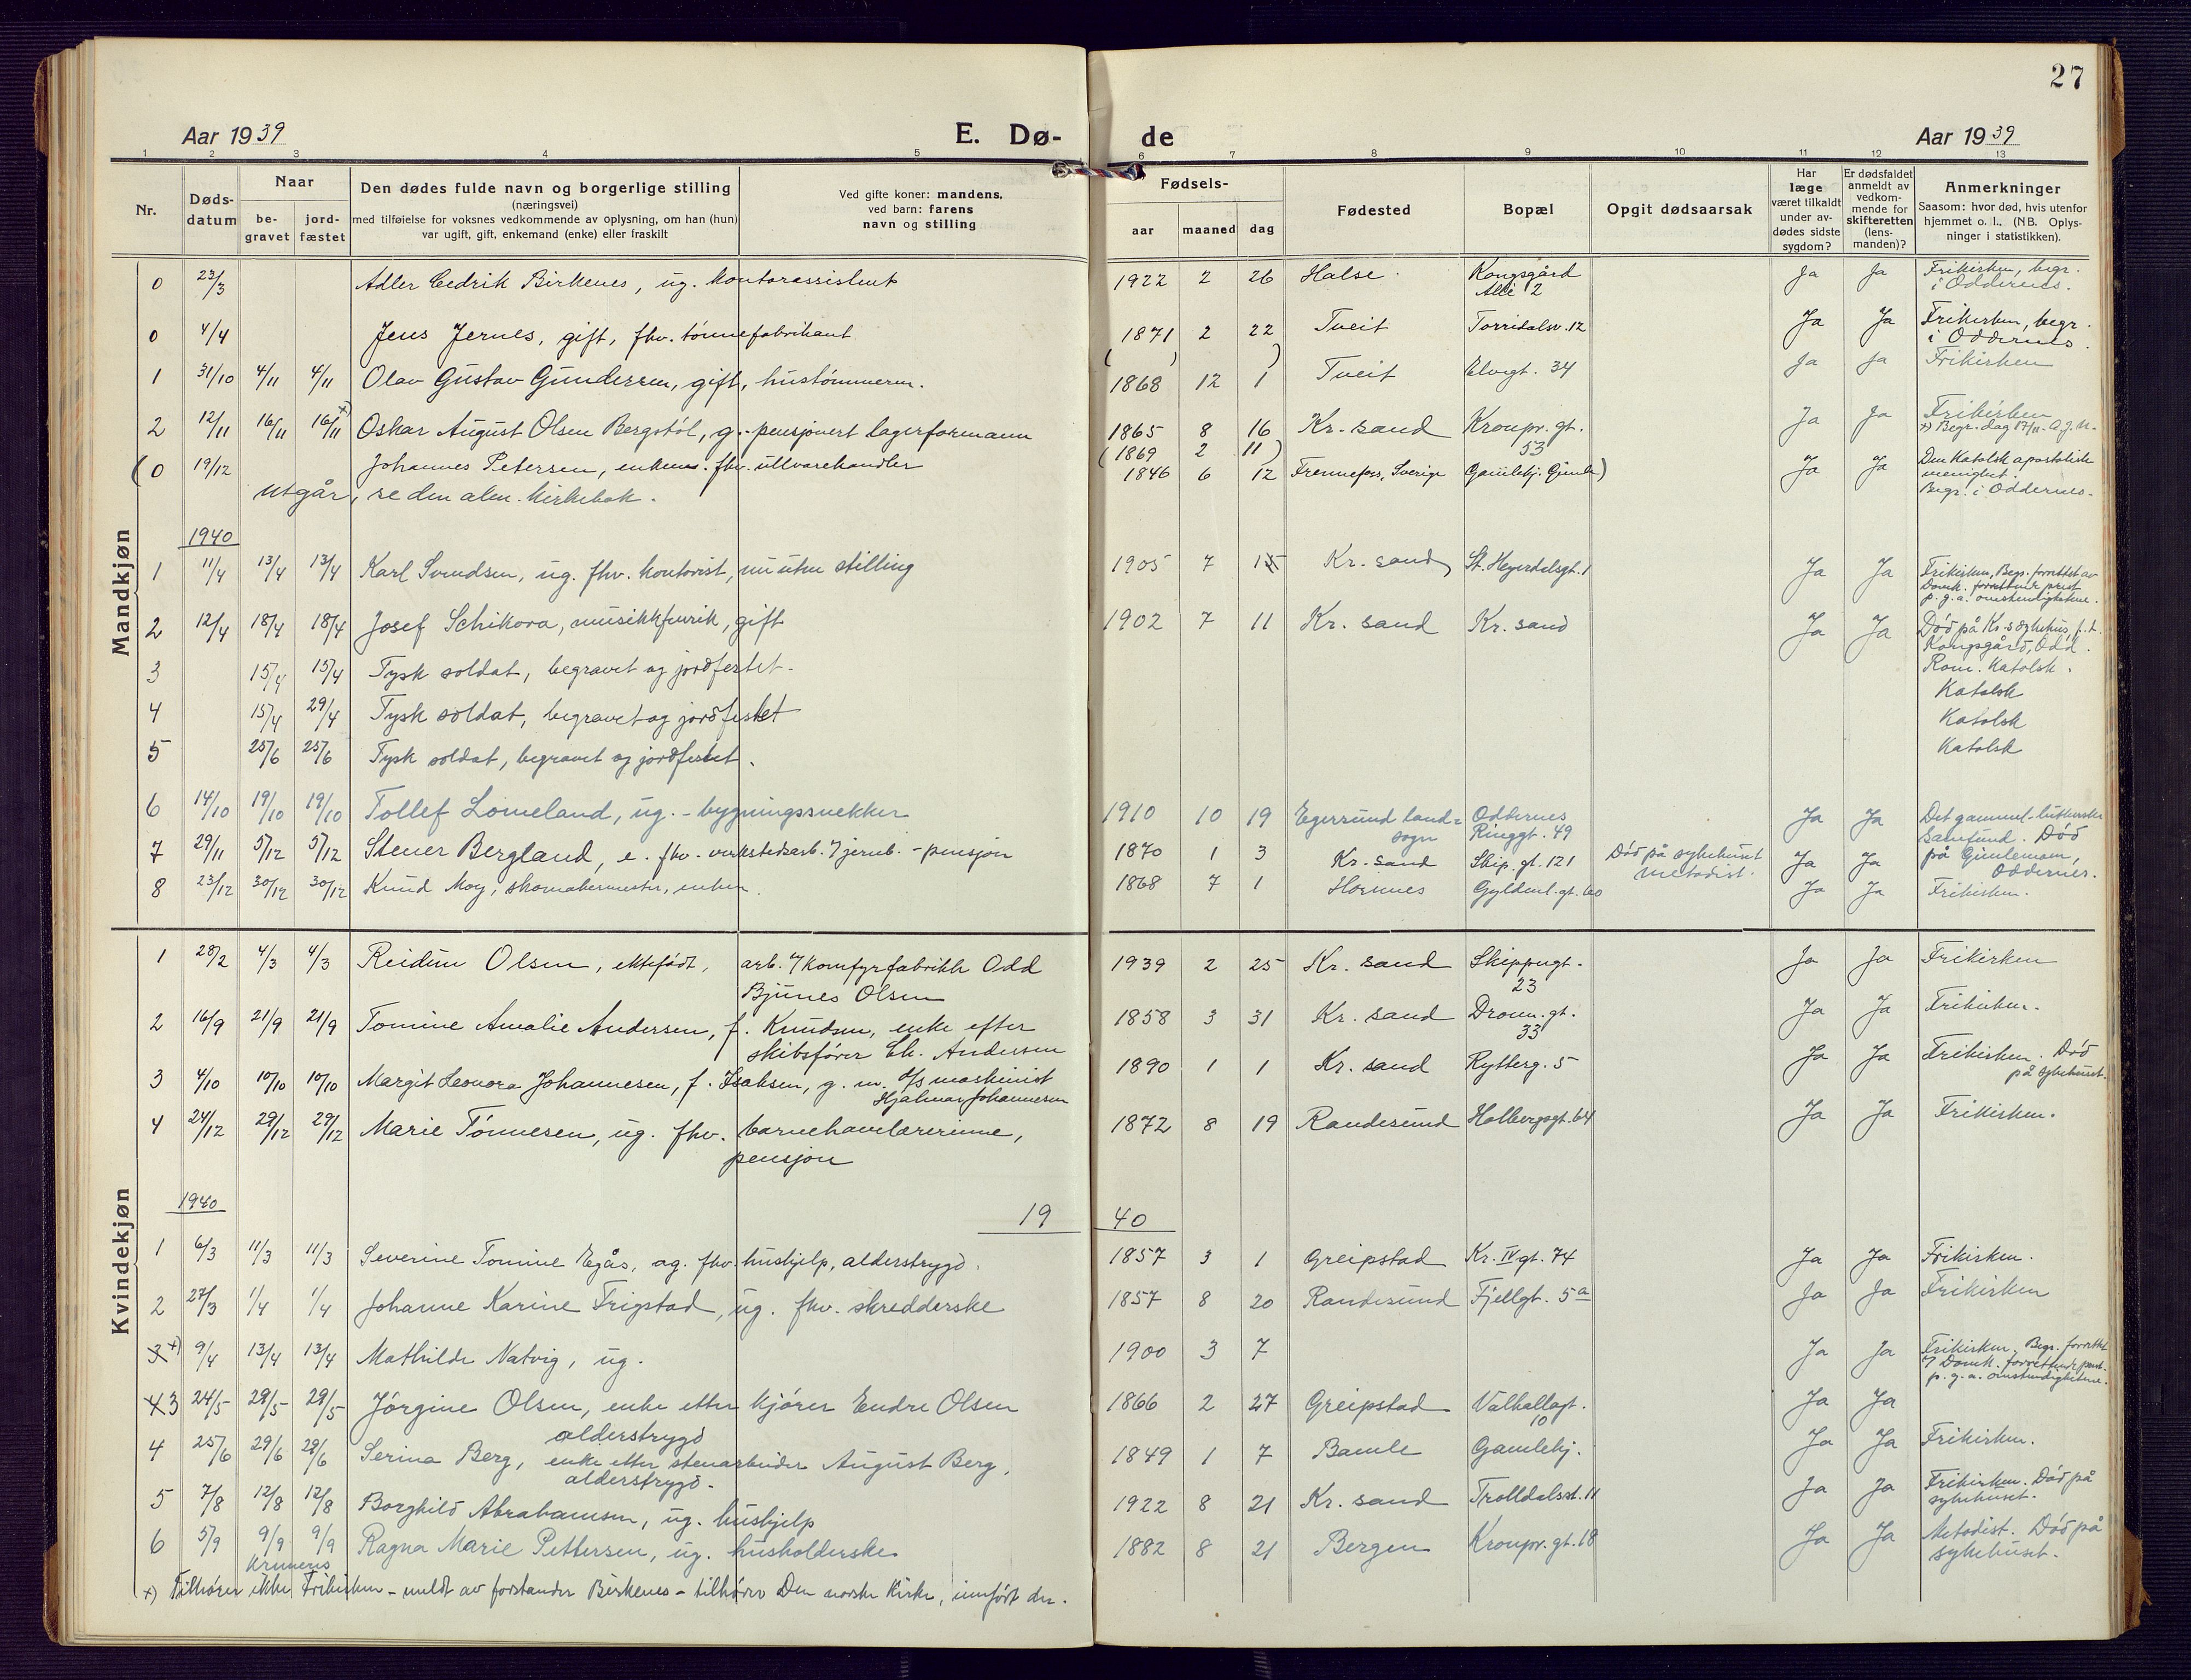 27
Aar 1939
E. Dø-
de
Aar 1939
1 2 3 4 5 6 7 8 9 10 11 12 13
Nr.
Døds-
datum
Naar
be-
gravet
jord-
fæstet
Den dødes fulde navn og borgerlige stilling
(næringsvei)
med tilføielse for voksnes vedkommende av oplysning, om han (hun)
var ugift, gift, enkemand (enke) eller fraskilt
Ved gifte koner: mandens,
ved barn: farens
navn og stilling
Fødsels-
aar
maaned
dag
Fødested
Bopæl
Opgit dødsaarsak
Har
læge
været tilkaldt
under av-
dødes sidste
sygdom?
Er dødsfaldet
anmeldt av
vedkom-
mende for
skifteretten
(lens-
manden)?
Anmerkninger
Saasom: hvor død, hvis utenfor
hjemmet o. l., (NB. Oplys-
ninger i statistikken).
Mandkjøn
0 23/3 Adler Cedrik Birkenes, ug. kontorassistent 1922 2 26 Halse Kongsgård Ja Ja Frikirken, begr.
Allé 2 i Oddernes.
0 4/4 Jens Jernes, gift, fhv. tønnefabrikant 1871 2 22 Tveit Torridalsv. 12 Ja Ja Frikirken, begr.
i Oddernes.
( ) )
1 31/10 4/11 4/11 Olav Gustav Gundersen, gift, hustømmerm. 1868 12 1 Tveit Elvegt. 34 Ja Ja Frikirken
2 12/11 16/11 16/11 x) Oskar August Olsen Bergstøl, g. - pensjonert lagerformann 1865 8 16 Kr. sand Kronpr. gt. Ja Ja Frikirken
53 x) Begr. dag 17/11
(1869 2 11)
(0 19/12 Johannes Petersen, enkem. fhv. ullvarehandler 1846 6 12 , Sverige Gamlehj. Gimle) Ja Ja Den Katolsk apostolisk
menighet.
utgår, se den alm. kirkebok. Begr. i Oddernes.
1940
1 11/4 13/4 13/4 Karl Svendsen, ug. fhv. kontorist, nu uten stilling 1905 7 15 Kr. sand, St. Heyerdalsgt. 1 Ja Ja Frikirken, Begr. forrettet av
Domk. forrettende prest
p. g. a. omstendighetene.
2 12/4 18/4 18/4 Josef Schikora, musikkfenrik, gift 1902 7 11 Kr. sand Kr. sand Ja Ja Død på Kr. s sykehus, f. t.
Kongsgård, Odd.
Rom. Katolsk.
3 15/4 15/4 Tysk soldat, begravet og jordfestet. Katolsk
4 15/4 29/4 Tysk soldat, begravet og jordfestet Katolsk
5 25/6 25/6 Tysk soldat, begravet og jordfestet. Katolsk
6 14/10 19/10 19/10 Tollef Lomeland, ug. - bygningssnekker 1910 10 19 Egersund land= Oddernes Ja Ja Det gammel-lutherske
sogn Ringgt. 49 Samfund. Død
på Gimlemoen,
Oddernes.
7 29/11 5/12 5/12 Stener Bergland, e. fhv. verkstedsarb. v/ jernb. - pensjon 1870 1 3 Kr. sand Skip. gt. 121 Død på sykehuset Ja Ja
metodist.
8 23/12 30/12 30/12 Knud Moy, skomakermester, enkem. 1868 7 1 Hornnes Gyldenl. gt. 60 Ja Ja Frikirken.
Kvindekjøn
1 28/2 4/3 4/3 Reidun Olsen, ektefødt, arb. v/ komfyrfabrikk Odd 1939 2 25 Kr. sand Skippergt. Ja Ja Frikirken
Bjunes Olsen 23
2 16/9 21/9 21/9 Tomine Amalie Andersen, f. Knudsen, enke efter 1858 3 31 Kr. sand Dronn. gt. Ja Ja Frikirken.
skibsfører Chr. Andersen 33
3 4/10 10/10 10/10 Margit Leonora Johannesen, f. Isaksen, g. m. d/s maskinist 1890 1 1 Kr. sand Rytterg. 5 Ja Ja Frikirken. Død
Hjalmar Johannesen på sykehuset.
4 24/12 29/12 29/12 Marie Tønnesen, ug. fhv. barnehavelærerinne, 1872 8 19 Randesund Holbergsgt. 64 Ja Ja Frikirken.
pensjon
1940 19 40
1 6/3 11/3 11/3 Severine Tomine Egås, ug. fhv. hushjelp, alderstrygd. 1857 3 1 Greipstad Kr. IV gt. 74 Ja Ja Frikirken.
2 27/3 1/4 1/4 Johanne Karine Frigstad, ug. fhv. skredderske 1857 8 20 Randesund Fjellgt. 5a Ja Ja Frikirken
3 x) 9/4 13/4 13/4 Mathilde Natvig, ug. 1900 3 7 Ja Ja Frikirken. Begr. forrettet
v/ Domk. forrettende prest.
p. g. a. omstendighetene.
4 3 24/5 28/5 28/5 Jørgine Olsen, enke etter kjører Endre Olsen 1866 2 27 Greipstad Valhallagt. Ja Ja
alderstrygd 10
4 25/6 29/6 29/6 Serina Berg, enke etter stenarbeider August Berg, 1849 1 7 Bamle Gamlehj. Ja Ja Frikirken.
alderstrygd.
5 7/8 12/8 12/8 Borghild Abrahamsen, ug. hushjelp 1922 8 21 Kr. sand Trolldalsst. 11 Ja Ja Frikirken. Død på
sykehuset.
6 5/9 9/9 9/9 Ragna Marie Pettersen, ug. husholderske 1882 8 21 Bergen Kronpr. gt. 18 Ja Ja Metodist. Død på
sykehuset.
x) Tilhører ikke Frikirken - meldt av forstander Birkenes - tilhører Den norske Kirke, innført der.